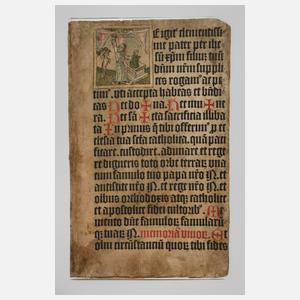 E igit᷑ clementissi⸗
me pater per ihe⸗
sū xp̄m filiuꝫ tuū
dūm nr̄m suppli⸗
ces rogamꝰ ac pe⸗
timꝰ. vti accepta habeas et bn̄di⸗
cas Hec do✠na. Hec mu✠ne⸗
ra. Hec sā✠cta sacrificia illiba⸗
ta In primis q̄ tibi offerimꝰ ꝓ ec⸗
clesia tua sctā catholica. quā paci⸗
ficare. custodire. adunare et rege⸗
re digneris toto orbe terraꝝ. vna
cum famulo tuo papa nr̄o N. et
antistite nr̄o N. et rege nr̄o N. et
oībus orthodoxis atqꝫ catholice
et apostolice fidei cultoribꝰ. Me⸗
mento dn̄e famuloꝝ famularū⸗
qꝫ tuaꝝ N. memoria viuoꝝ. Et
oīm circūstanciū quoꝝ tibi fides